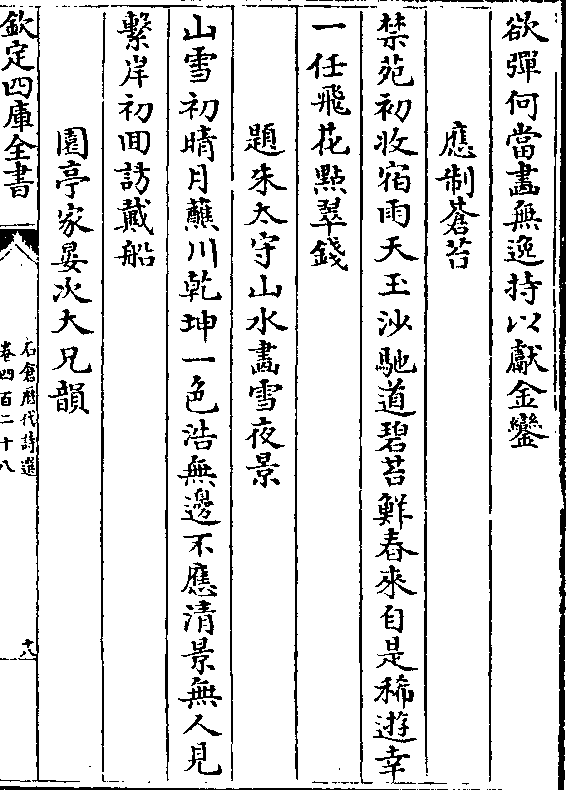 欲彈何當畫無逸持以獻金鑾
應制蒼苔
禁苑初收宿雨天玉沙馳道碧苔鮮春來自是稀遊幸
一任飛花點翠錢
題朱太守山水畫雪夜景
山雪初晴月蘸川乾坤一色浩無邊不應清景無人見
繫岸初回訪戴船
園亭家宴次大兄韻
欽定四庫全書
石倉歷代詩選
卷四百二十八
十八